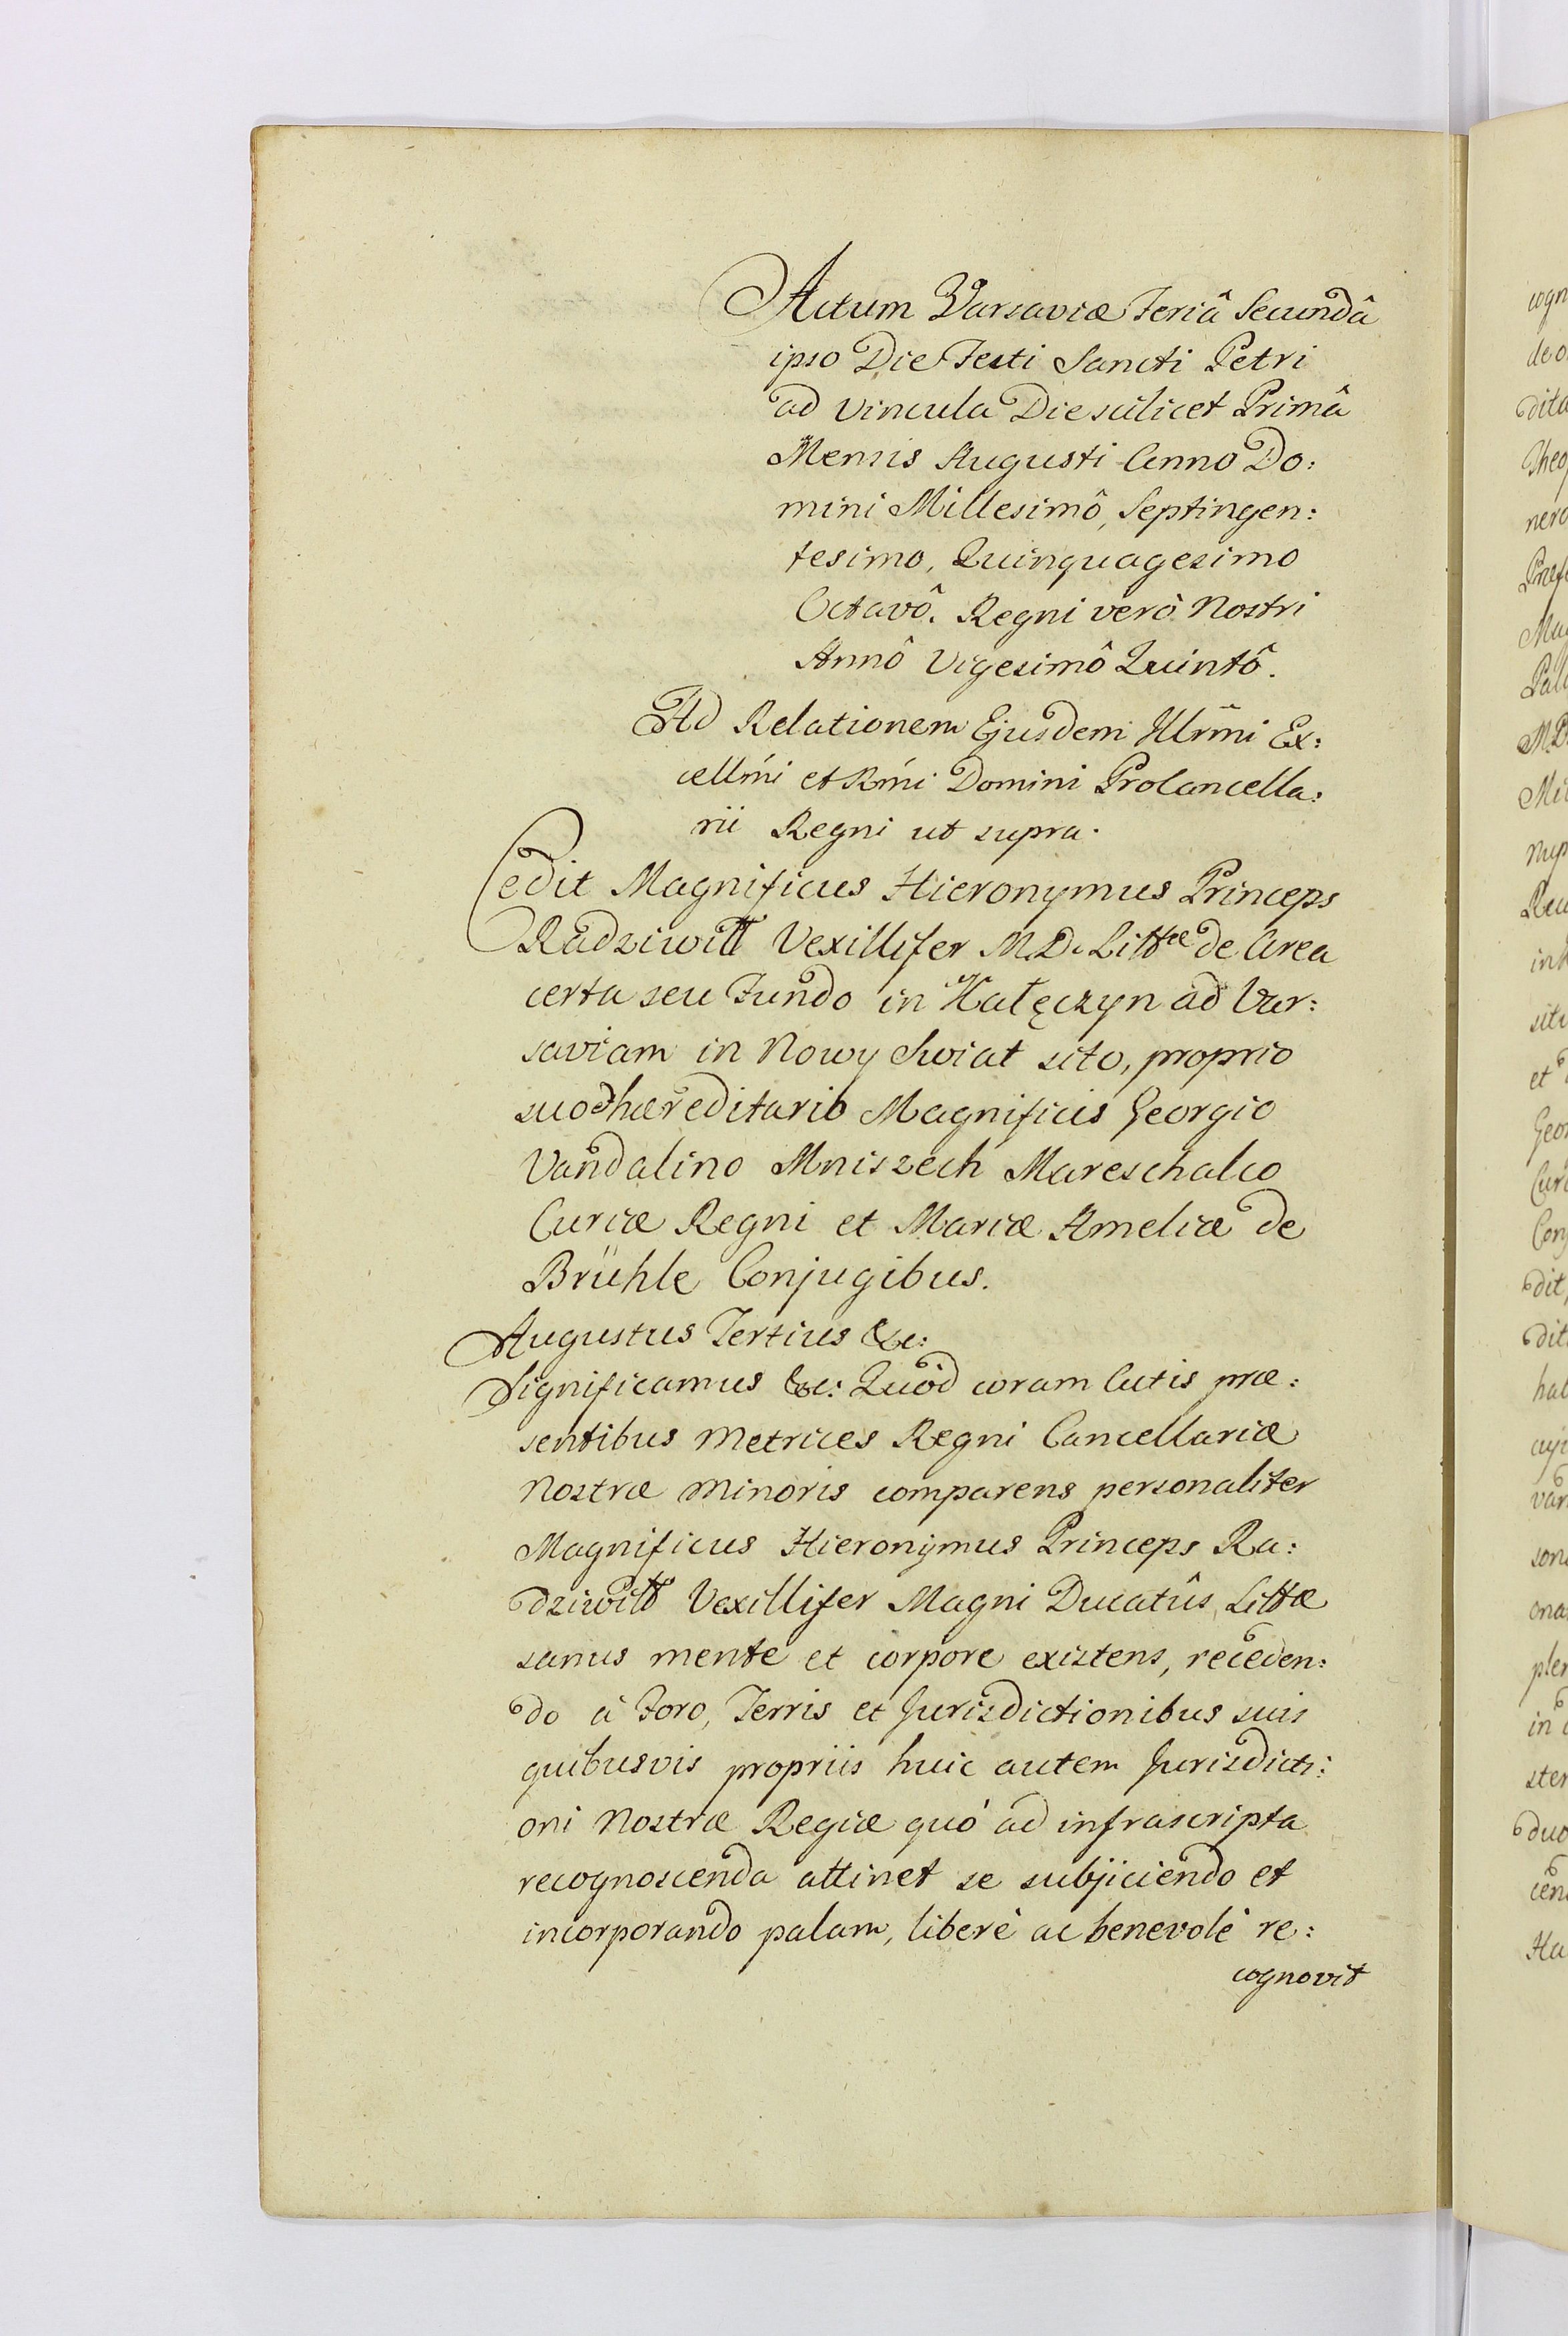 Actum Varsaviæ Feriâ Secundâ
ipso Die Festi Sancti Petri
ad Vincula Die scilicet Primâ
Mensis Augusti Anno Do:
mini Millesimô, Septingen:
tesimo, Quinquagesimo
Octavô. Regni verò Nostri
Annô Vigesimô Quintô.
Ad Relationem Ejusdem Illrm̃i Ex:
cellm̃i et Rm̃i Domini ProCancella:
rii Regni ut supra.
Cedit Magnificus Hieronymus Princeps
Radziwiłł Vexillifer M. D. Littæ de Area
certa seu Fundo in Kałęczyn ad Var:
saviam in Nowy Swiat sito, proprio
suo hæreditario Magnificis Georgio
Vandalino Mniszech Mareschalco
Curiæ Regni et Mariæ Ameliæ de
Brühle Conjugibus.
Augustus Tertius &c:
Significamus &c: Quòd coram Actis præ:
sentibus Metrices Regni Cancellariæ
Nostræ Minoris comparens personaliter
Magnificus Hieronymus Princeps Ra:
dziwiłł Vexillifer Magni Ducatûs Littæ
sanus mente et corpore existens, receden:
do à Foro, Terris et Jurisdictionibus suis
quibusvis propriis huic autem Jurisdicti:
oni Nostræ Regiæ quó ad infrascripta
recognoscenda attinet se subjiciendo et
incorporando palam, liberè ac benevolè re:
cognovit